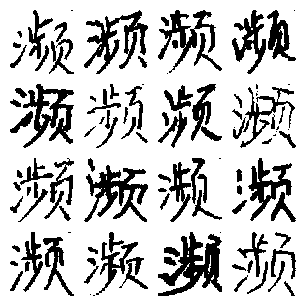 濒濒濒濒
濒濒濒濒
濒濒濒濒
濒濒濒濒